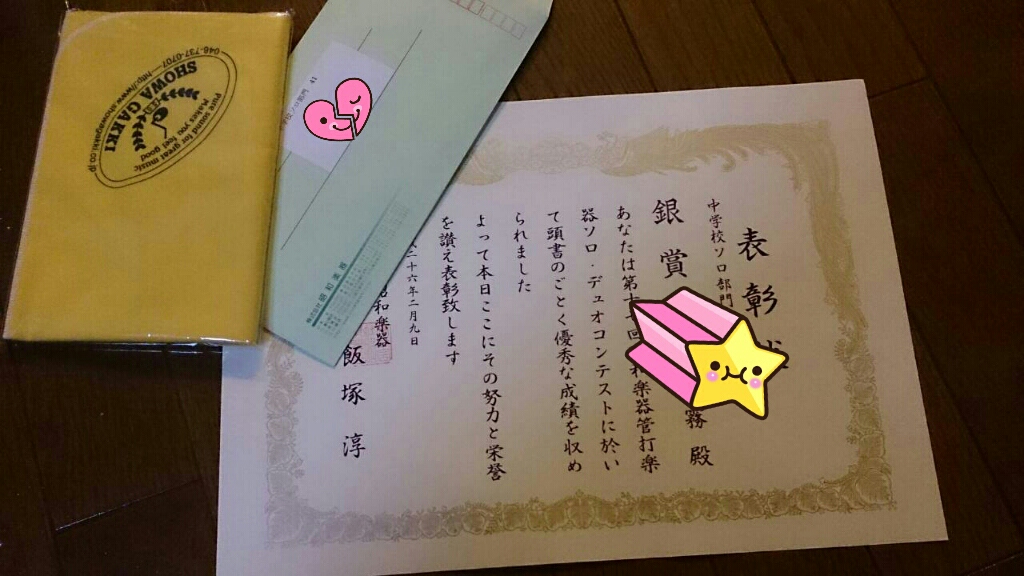 表彰状
中学校ソロ部門
銀賞
務 殿
あなたは第十 回 和楽器管打楽
器ソロ・デュオコンテストに於い
て頭書のごとく優秀な成績を収め
られました
よって本日ここにその努力と栄誉
を讃え表彰致します
二十六年二月九日
昭和楽器
飯塚 淳
株式会社昭和楽器
校ソロ部門 41
Pure sound for great music
Makes you feel good
SHOWA GAKKI
048-737-0707 http://www.showagakki.co.jp